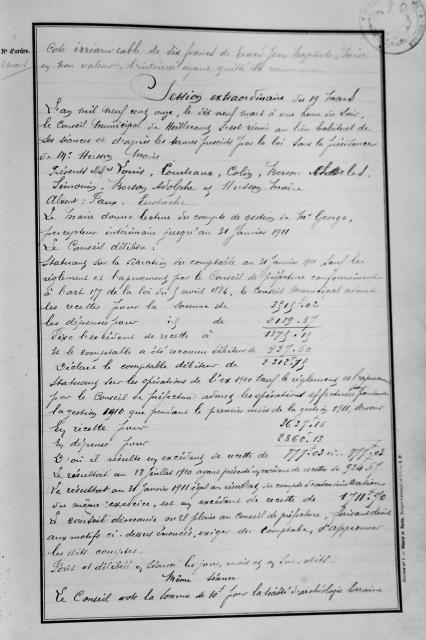 N° d'ordre.
Cote irrécouvrable de six francs de Evard Jean Baptiste,
en non valeur, l'intéressé ayant quitté la commune
Session extraordinaire du 19 Mars
L'an mil neuf cent onze, le dix neuf mars à une heure du soir,
le Conseil Municipal de s'est réuni au lieu habituel de
ses séances et d'après les termes prescrits par la loi sous la présidence
de Mr Husson Maire
Présents MMrs Louis, Comteaux, Colin, Berson Charles,
Simonin, Berson Adolphe et Husson, Maire
Absent : Faux. Eustache.
Le Maire donne lecture du compte de gestion de Mr George,
percepteur intérimaire jusqu'au 31 Janvier 1911
Le Conseil délibère :
Statuant sur la situation du comptable au 31 Janvier 1911 sauf le
règlement et l'apurement par le Conseil de préfecture conformément
à l'art 157 de la loi du 5 avril 1884, le Conseil Municipal admet
les recettes pour la somme de 3515.02
les dépenses pour id de 2139.87
Fixe l'excédent de recette à 1375.15
et le comptable a été reconnu débiteur de 937.60
Déclare le comptable débiteur de 2312.75
Statuant sur les opérations de l'ex 1910 sauf le règlement et l'apurement
par le Conseil de préfecture admet les opérations effectuées pendant
la gestion 1910 que pendant le premier mois de la gestion 1911, savoir
En recette pour 3637.16
En dépense pour 2860.13
D'où il résulte un excédent de recette de 777.03 ci. 777.03
Le résultat au 1910 ayant présenté un excédent de recette de 934.87
Le résultat au 31 Janvier 1911 égal au résultat du compte d'administration
du même exercice, est un excédent de recette de 1711.90
Le conseil demande qu'il plaise au Conseil de préfecture, faisant droit
aux motifs ci-dessus énoncés, exiger du comptable, d'approuver
les dits comptes.
Fait et délibéré en séance les jour, mois et an sus. dits.
Même séance
Le Conseil vote la somme de 10f pour la Société d'archéologie lorraine